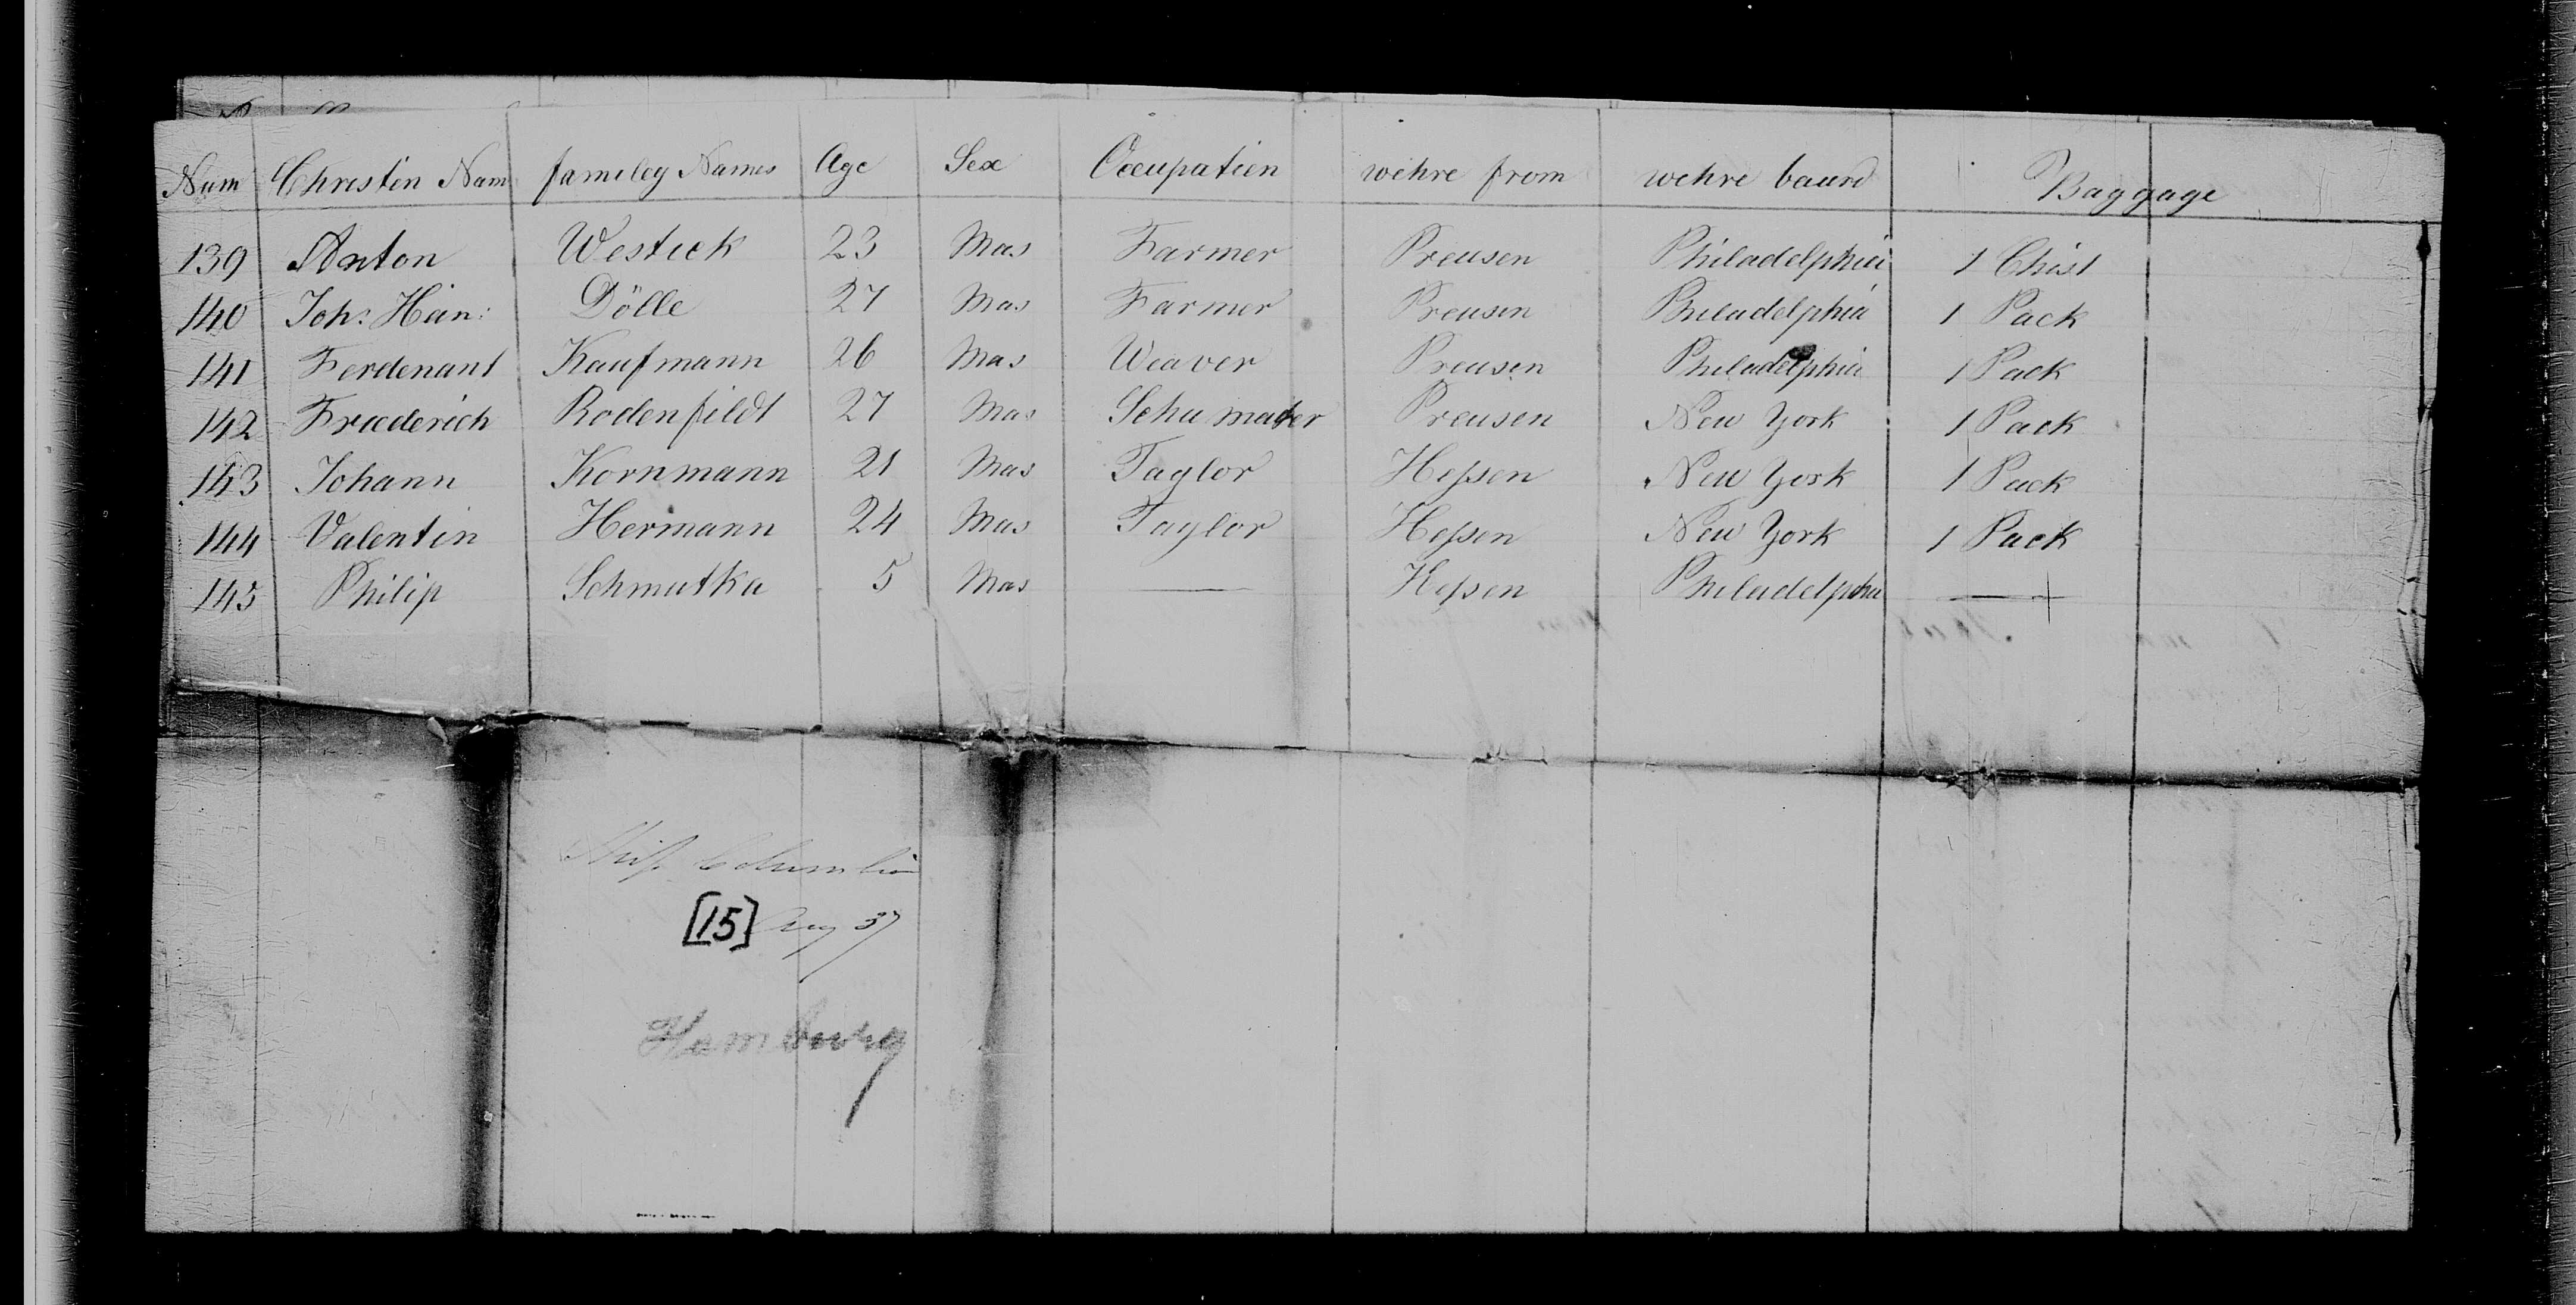 Num Christin Nam familey Names Age Sex Occupatien wehre from wehre baund Baggage
139 Anton Westick 23 Mas Farmer Preusen Philadelphia 1 Chist
140 Joh: Hein: Dölle 27 Mas Farmer Preusen Philadelphia 1 Pack
141 Ferdenant Kaufmann 26 Mas Weaver Preusen Philadelphia 1 Pack
142 Fraederich Rodenfildt 27 Mas Schumaker Preusen New York 1 Pack
143 Johann Kornmann 21 Mas Taylor Heſsen New York 1 Pack
144 Valentin Hermann 24 Mas Taylor Heſsen New York 1 Pack
145 Philip Schmutka 5 Mas — Heſsen Philadelphia —
Ship Columbia
[15] Aug 37
Hamburg